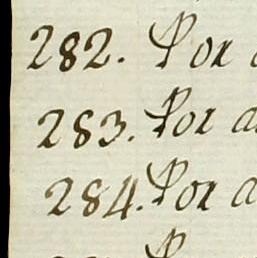 282. Por a
283. Por a
284. Por a